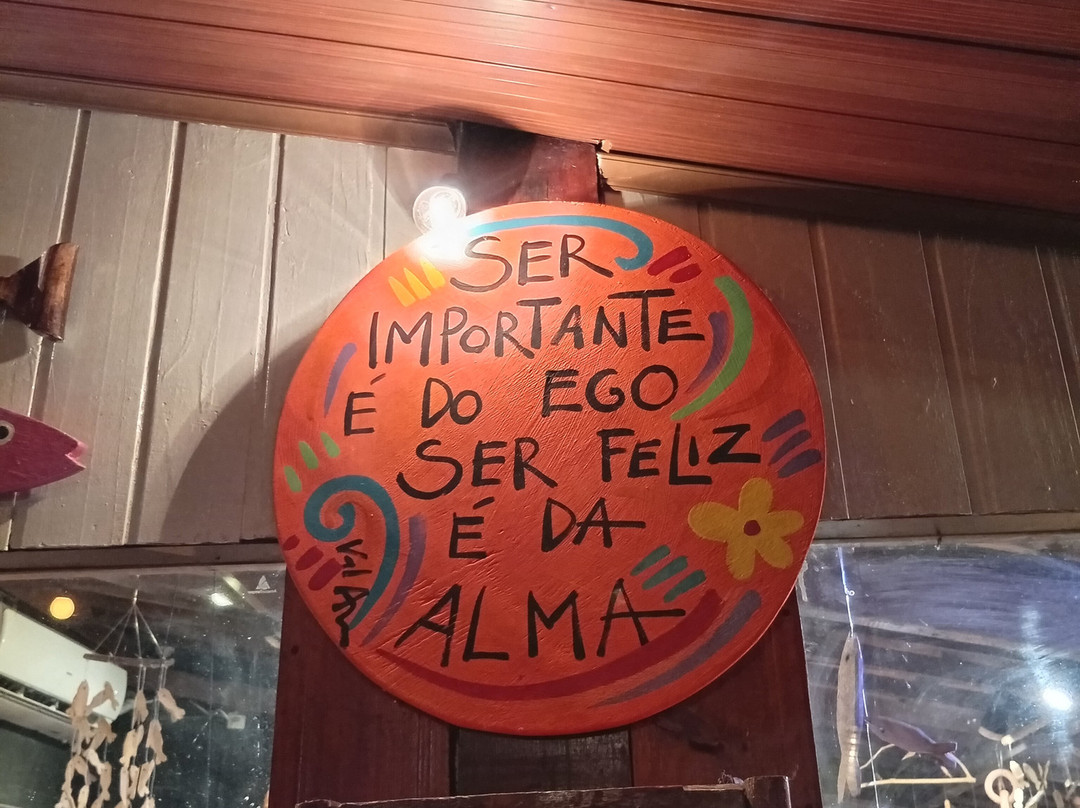 SER
IMPORTANTE
É DO EGO
SER FELIZ
É DA
ALMA